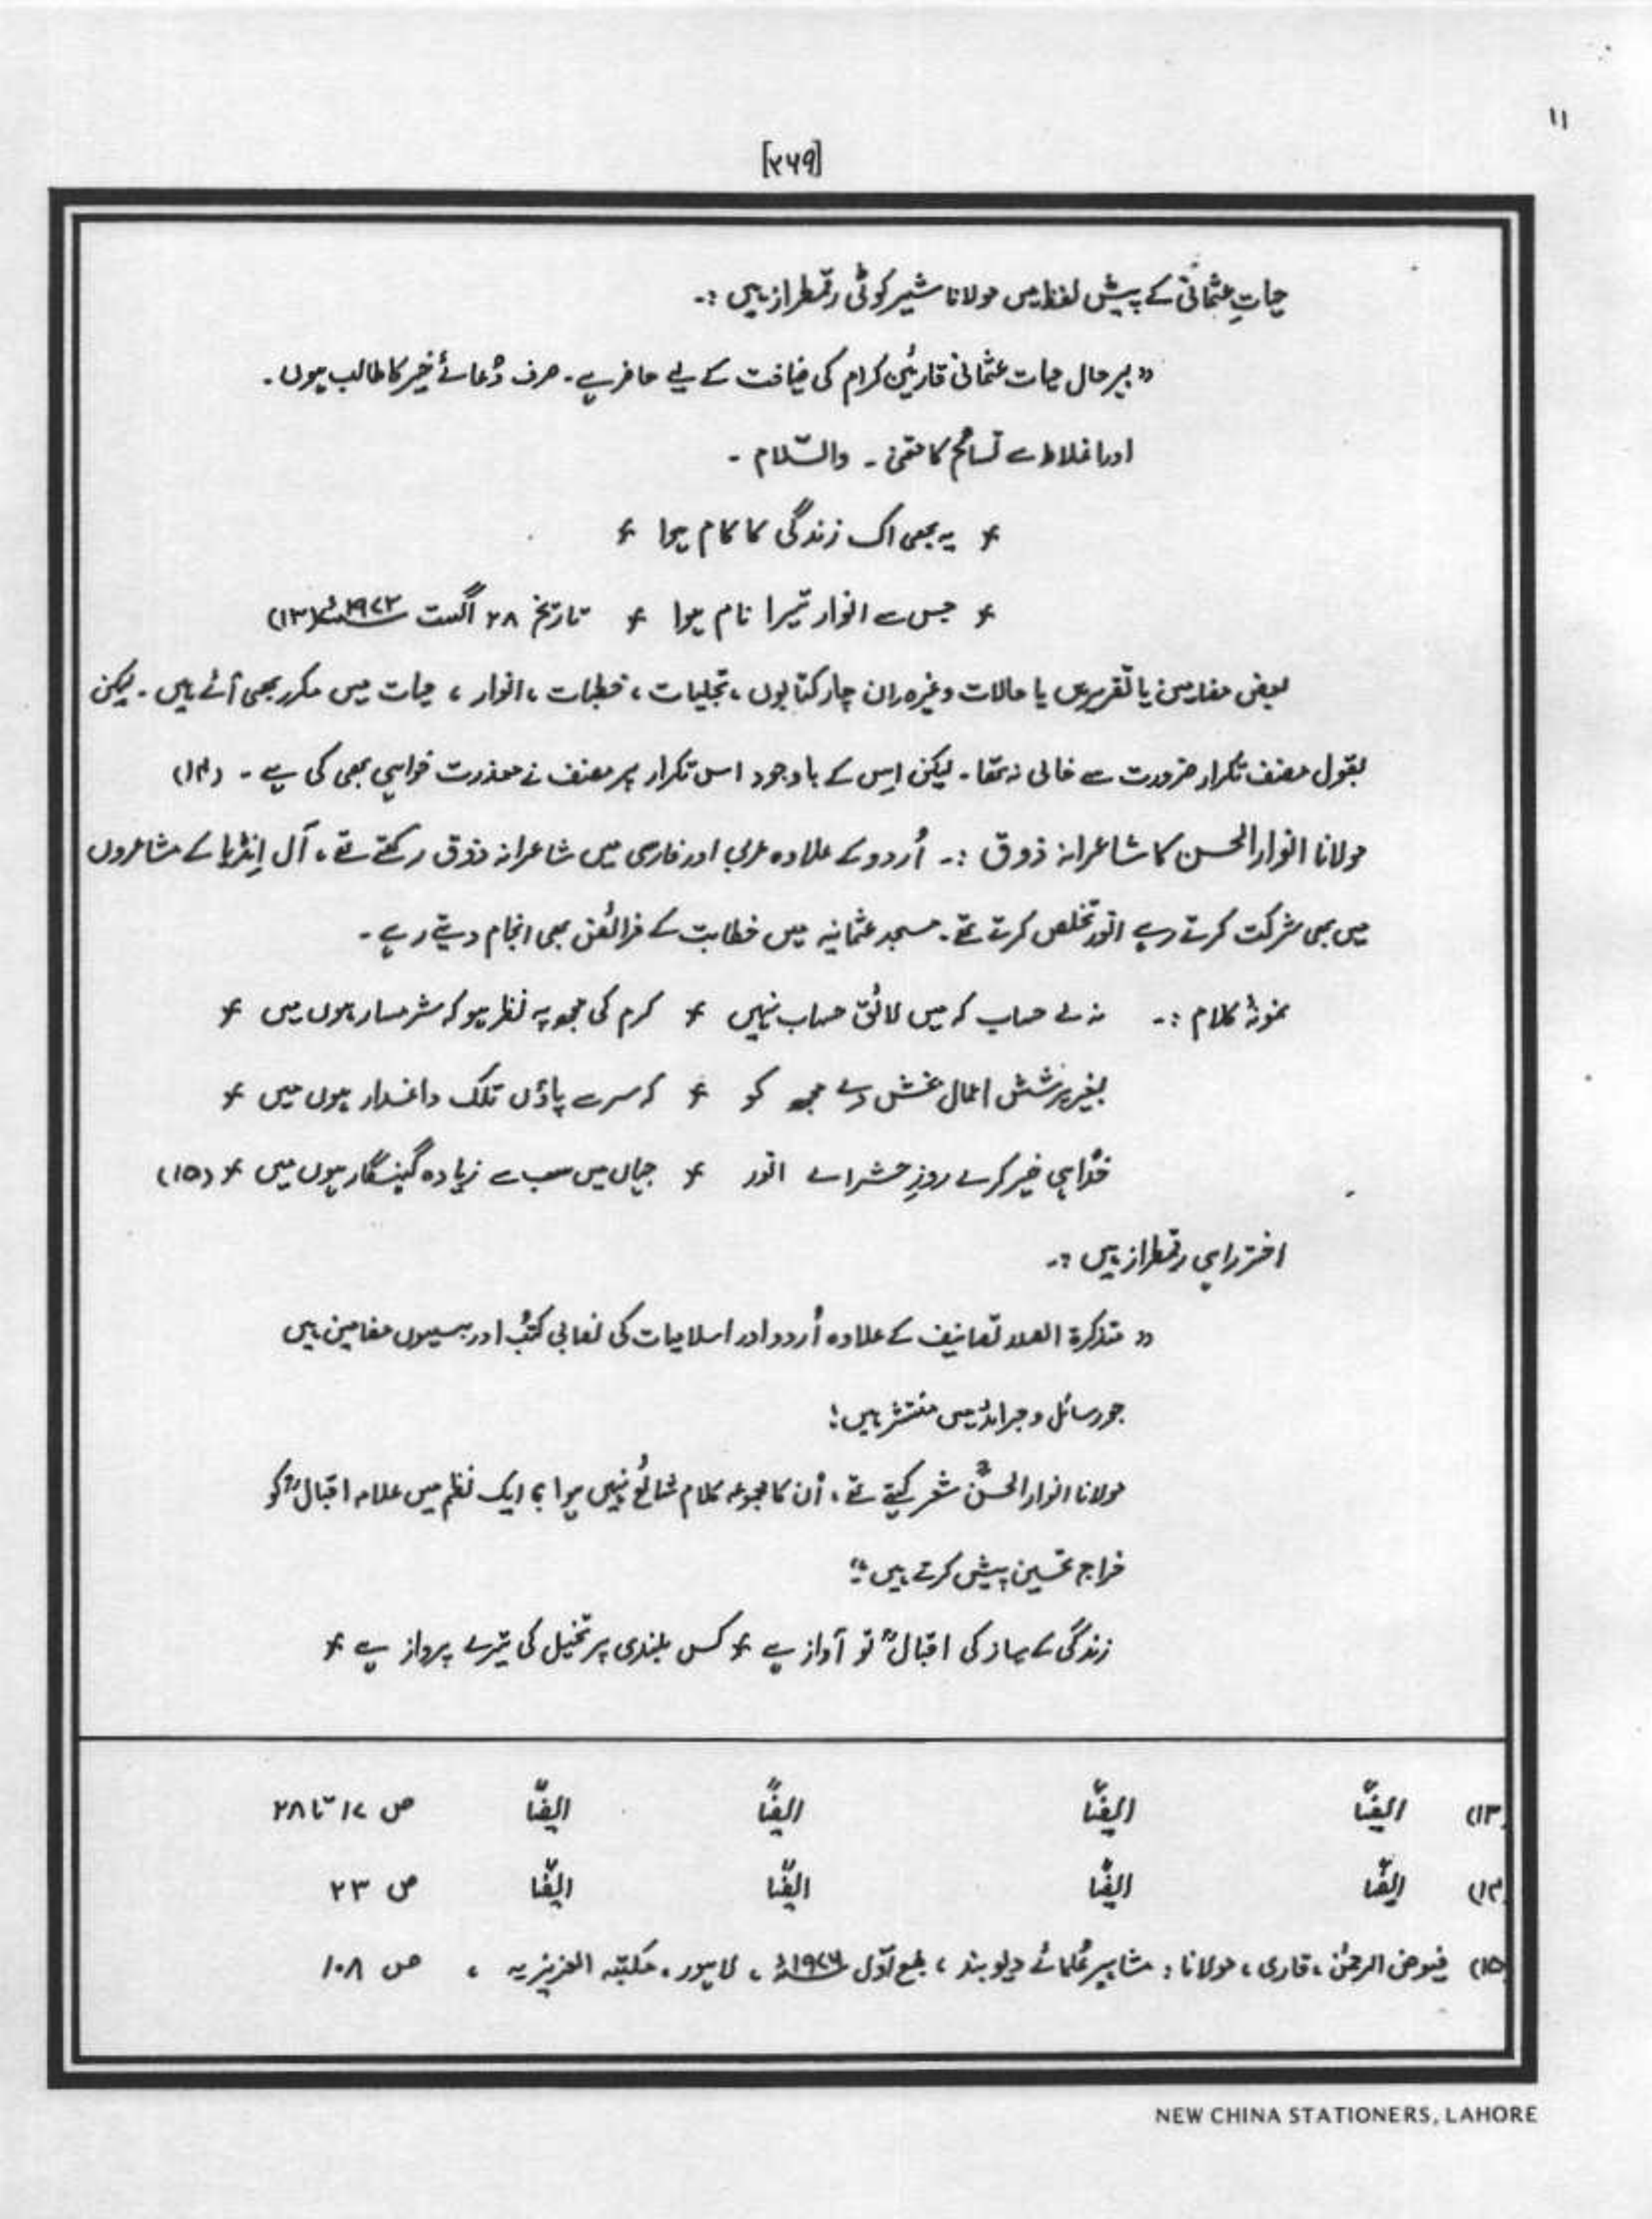 ۱۱
[۲۶۹]
حیاتِ عثمانیؒ کے پیش لفظ میں مولانا شیرکوٹی رقمطراز ہیں :۔
" بہرحال حیات عثمانی قارئین کرام کی ضیافت کے لیے حاضر ہے۔ صرف دُعائے خیر کا طالب ہوں۔
اور اغلاط سے تسامُح کا متمنی ۔ والسّلام ۔
٭ یہ بھی اک زندگی کا کام ہوا ٭
٭ جس سے انوار تیرا نام ہوا ٭ تاریخ ۲۸ اگست ۱۹۷۲ء (۱۳)
بعض مضامین یا تقریریں یا حالات وغیرہ ان چار کتابوں ، تجلیات ، خطبات ، انوار ، حیات میں مکرر بھی آئے ہیں ۔ لیکن
بقول مصنف تکرار ضرورت سے خالی نہ تھا ۔ لیکن اِس کے باوجود اس تکرار پر مصنف نے معذرت خواہی بھی کی ہے ۔ (۱۴)
مولانا انوارالحسن کا شاعرانہ ذوق :۔ اُردو کے علاوہ عربی اور فارسی میں شاعرانہ ذوق رکھتے تھے ، آل اِنڈیا کے مشاعروں
میں بھی شرکت کرتے رہے انور تخلص کرتے تھے ۔ مسجد عثمانیہ میں خطابت کے فرائض بھی انجام دیتے رہے ۔
نمونۂ کلام :۔ نہ لے حساب کہ میں لائق حساب نہیں ٭ کرم کی مجھ پہ نظر ہو کہ شرمسار ہوں میں ٭
بغیر پرسشِ اعمال بخش دے مجھ کو ٭ کہ سر سے پاؤں تلک داغدار ہوں میں ٭
خُدا ہی خیر کرے روزِ حشر اے انور ٭ جہاں میں سب سے زیادہ گنہگار ہوں میں ٭ (۱۵)
اختر راہی رقمطراز ہیں :۔
" متذکرۃ الصدر تصانیف کے علاوہ اُردو اور اسلامیات کی نصابی کتُب اور بیسیوں مضامین ہیں
جو رسائل و جرائد میں منتشر ہیں ؛
مولانا انوارالحسنؒ شعر کہتے تھے ، اُن کا مجموعہ کلام شائع نہیں ہوا ؛ ایک نظم میں علامہ اقبالؒ کو
خراجِ تحسین پیش کرتے ہیں ؛"
زندگی کے ساز کی اقبالؒ تو آواز ہے ٭ کس بلندی پر تخیل کی تیرے پرواز ہے ٭
(۱۳) ایضًا ایضًا ایضًا ایضًا ص ۱۷ تا ۲۸
(۱۴) ایضًا ایضًا ایضًا ایضًا ص ۲۳
(۱۵) فیوض الرحمٰن ، قاری ، مولانا : مشاہیر عُلمائے دیوبند ، طبع اوّل ۱۹۷۶ء ، لاہور ، مکتبہ العزیزیہ ، ص ۱۰۸
NEW CHINA STATIONERS, LAHORE